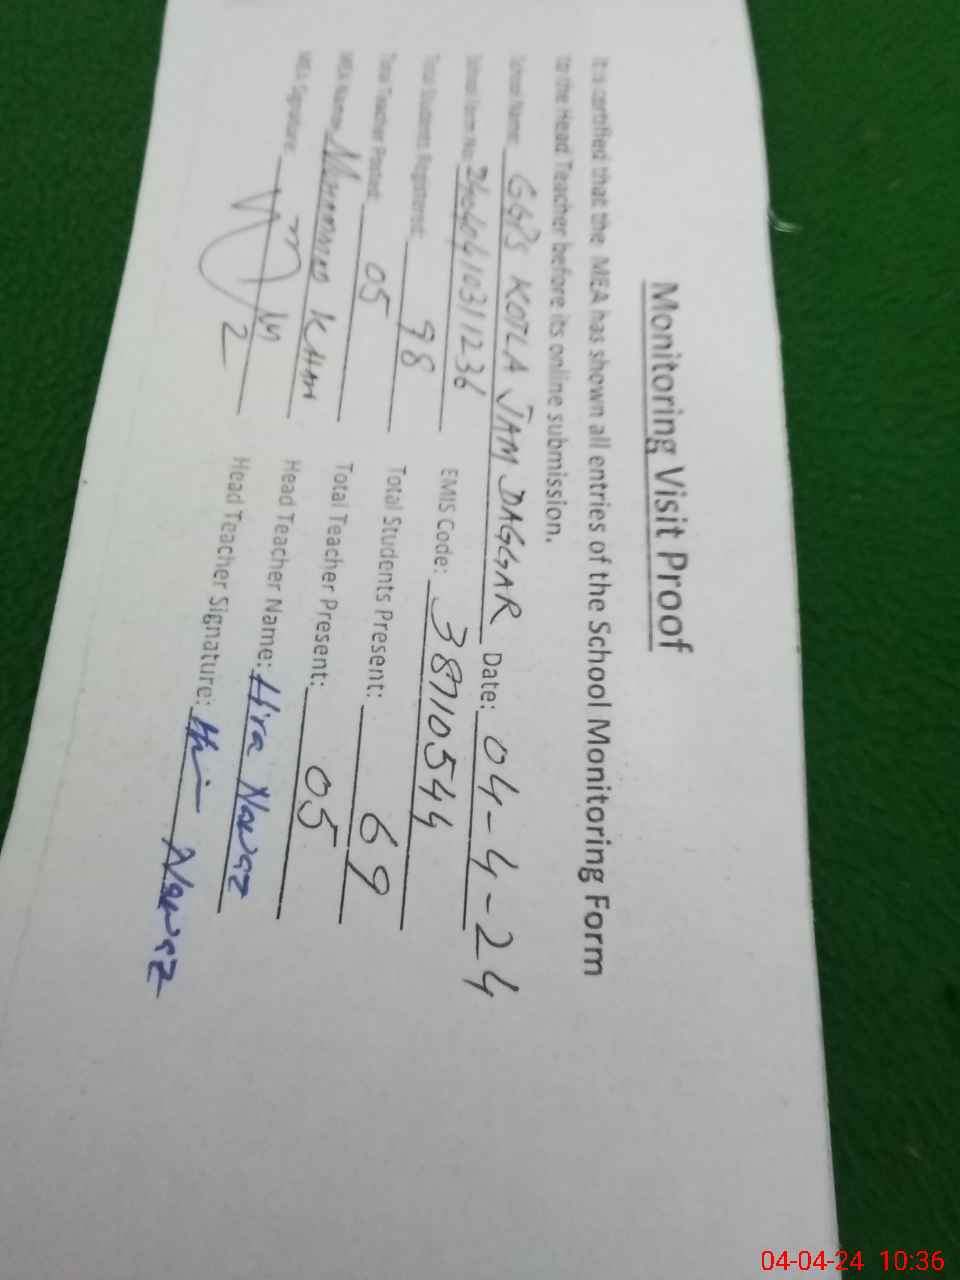 Monitoring Visit Proof
It is certified that the MEA has shown all entries of the School Monitoring Form
to the Head Teacher before its online submission.
School Name: GGPS KOTLA JAM DAGGAR Date: 04-4-24
School Form No: EMIS Code: 38710544
Total Students Registered: 98 Total Students Present: 69
Total Teacher Posted: 05 Total Teacher Present: 05
MEA Name: Muhammad Khan Head Teacher Name: Hira Nawaz
MEA Signature: Head Teacher Signature: Hira Nawaz
04-04-24 10:36